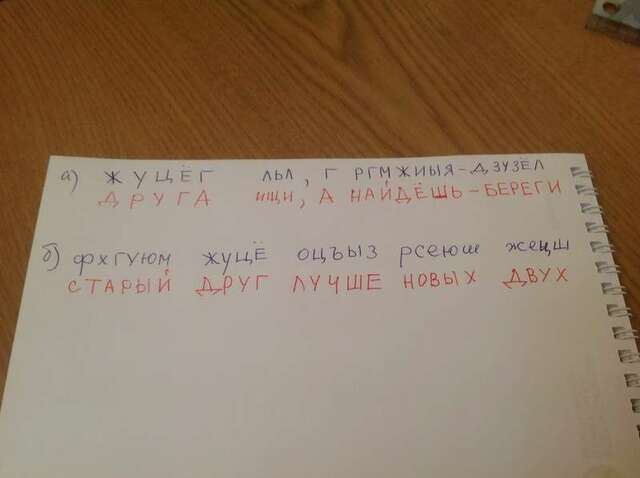 а) ЖУЩЁГ ЛЬЛ, Г РГМЖИЫЯ-ДЗУЗЁЛ
ДРУГА ИЩИ, А НАЙДЁШЬ-БЕРЕГИ
б) ФХГУЮМ ЖУЩЁ ОЦЪЫЗ РСЕЮШ ЖЕЩШ
СТАРЫЙ ДРУГ ЛУЧШЕ НОВЫХ ДВУХ